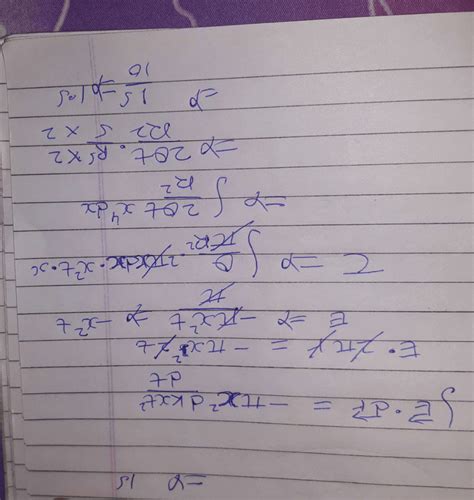 ⇒ 15
∫ E⃗·dr⃗ = -πx² dkxt²/dt
E·2πx = -πx²2t
E ⇒ -πx²t/π ⇒ -x²t
τ ⇒ ∫ Q/πR² · 2πxdx · x²t · x
⇒ ∫ 2Qt/R² x⁴dx
⇒ 2Qt/R² · R⁵×2/5×2
⇒ 15/10 ⇒ 1.5